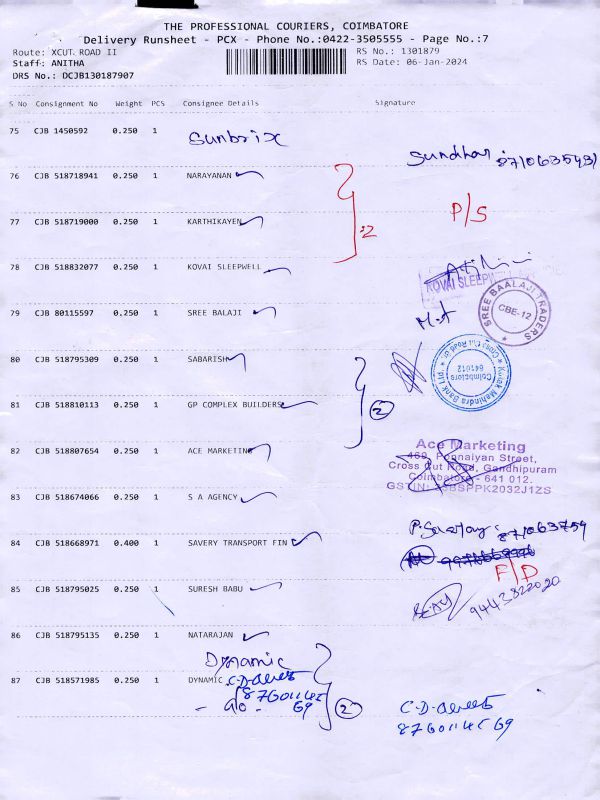 THE PROFESSIONAL COURIERS, COIMBATORE
Delivery Runsheet - PCX - Phone No.:0422-3505555 - Page No.:7
Route: XCUT. ROAD II
RS No.: 1301879
Staff: ANITHA
RS Date: 06-Jan-2024
DRS No.: DCJB130187907
S No Consignment No Weight PCS Consignee Details Signature
75 CJB 1450592 0.250 1 Sunbrix
Sundhar
76 CJB 518718941 0.250 1 NARAYANAN
77 CJB 518719000 0.250 1 KARTHIKAYEN
:2 P/S
78 CJB 518832077 0.250 1 KOVAI SLEEPWELL
KOVAI SLEEPWELL
79 CJB 80115597 0.250 1 SREE BALAJI
SREE BAALAJI TRADERS
CBE-12
80 CJB 518795309 0.250 1 SABARISH
Kotak Mahindra Bank Ltd
Cross Cut Road
Coimbatore
641012
81 CJB 518810113 0.250 1 GP COMPLEX BUILDERS
2
82 CJB 518807654 0.250 1 ACE MARKETING
Ace Marketing
469, Ponnaiyan Street,
Cross Cut Road, Gandhipuram
Coimbatore - 641 012.
83 CJB 518674066 0.250 1 S A AGENCY
84 CJB 518668971 0.400 1 SAVERY TRANSPORT FIN
F/D
85 CJB 518795025 0.250 1 SURESH BABU
9443822020
86 CJB 518795135 0.250 1 NATARAJAN
Dynamic
87 CJB 518571985 0.250 1 DYNAMIC
2